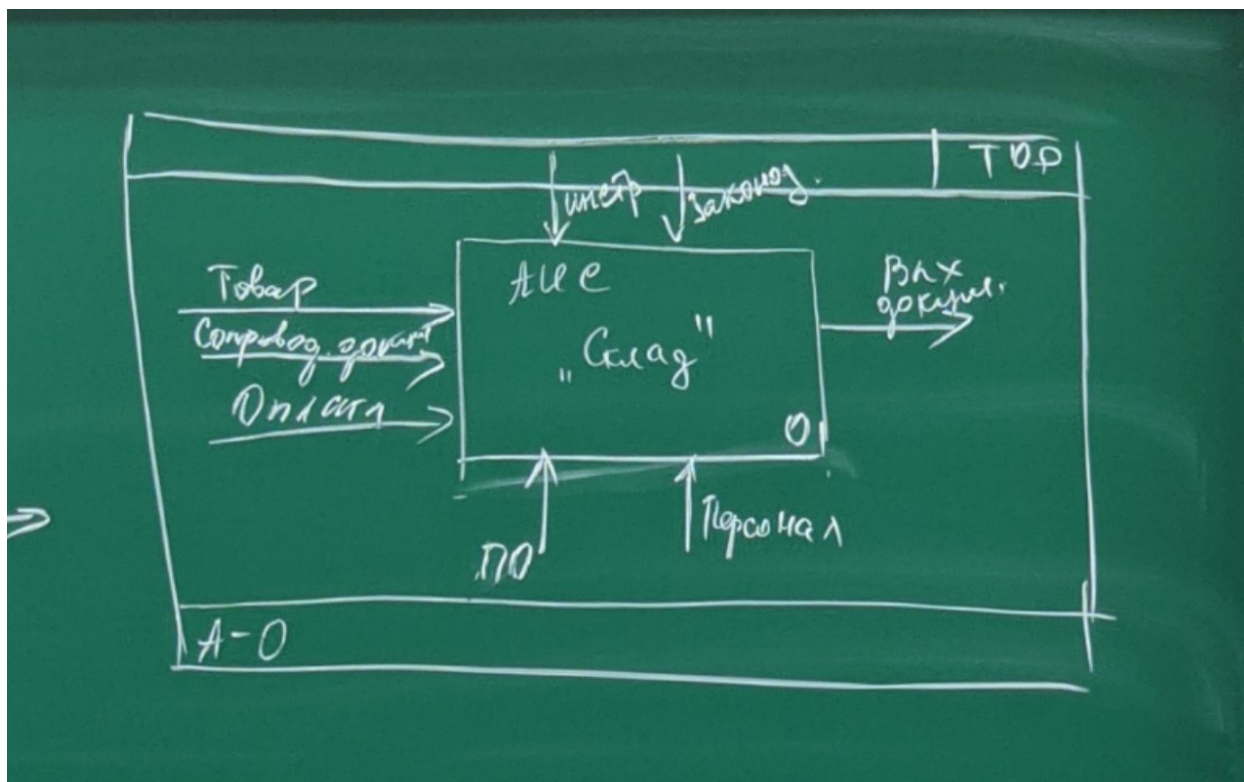 TOP
инстр
законод.
Товар
Сопровод. докумт
Оплата
АИС
„Склад"
0
Вых
докум.
ПО
Персонал
A-0